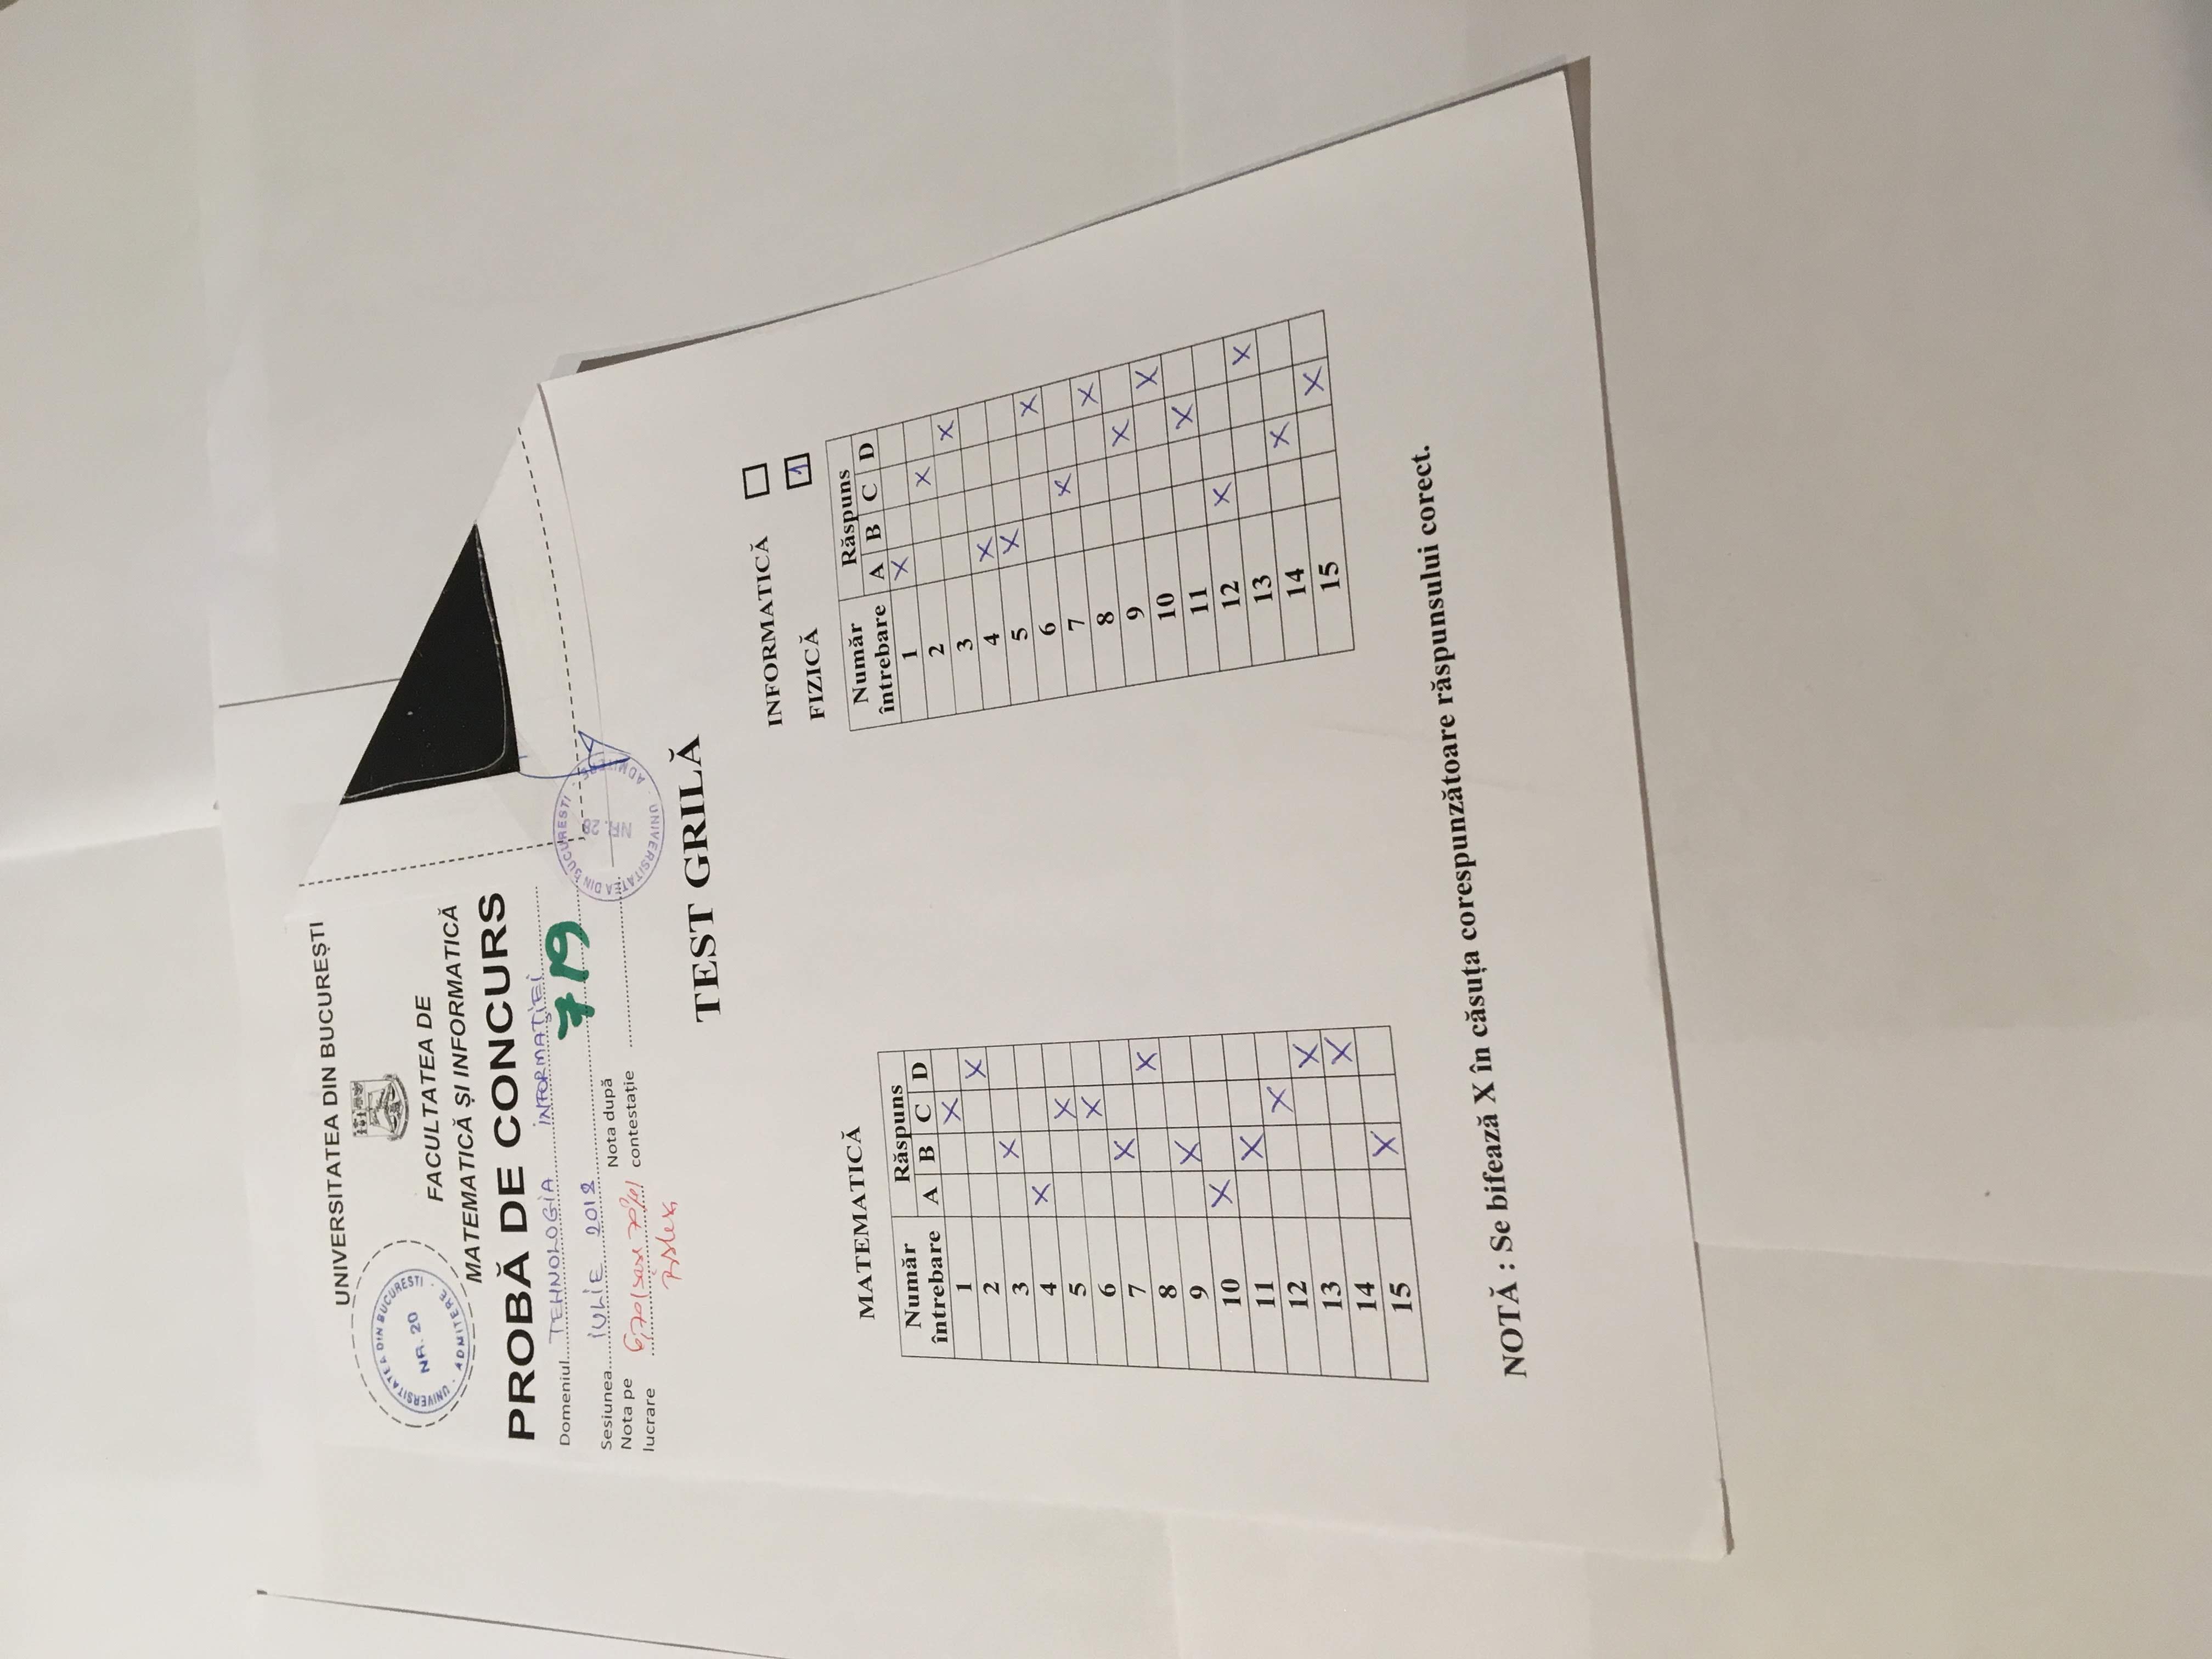 UNIVERSITATEA DIN BUCUREȘTI
UNIVERSITATEA DIN BUCURESTI · ADMITERE ·
NR. 20
FACULTATEA DE
MATEMATICĂ ȘI INFORMATICĂ
PROBĂ DE CONCURS
Domeniul TEHNOLOGIA INFORMAȚIEI
Sesiunea IULIE 2018
719
Nota pe lucrare 6,70 (șase 70%)
Nota după contestație
UNIVERSITATEA DIN BUCURESTI · ADMITERE ·
NR. 20
TEST GRILĂ
INFORMATICĂ
FIZICĂ 1
MATEMATICĂ
Număr întrebare Răspuns
A B C D
1 X
2 X
3 X
4 X
5 X
6 X
7 X
8 X
9 X
10 X
11 X
12 X
13 X
14 X
15 X
Număr întrebare Răspuns
A B C D
1 X
2 X
3 X
4 X
5 X
6 X
7 X
8 X
9 X
10 X
11 X
12 X
13 X
14 X
15 X
NOTĂ : Se bifează X în căsuța corespunzătoare răspunsului corect.